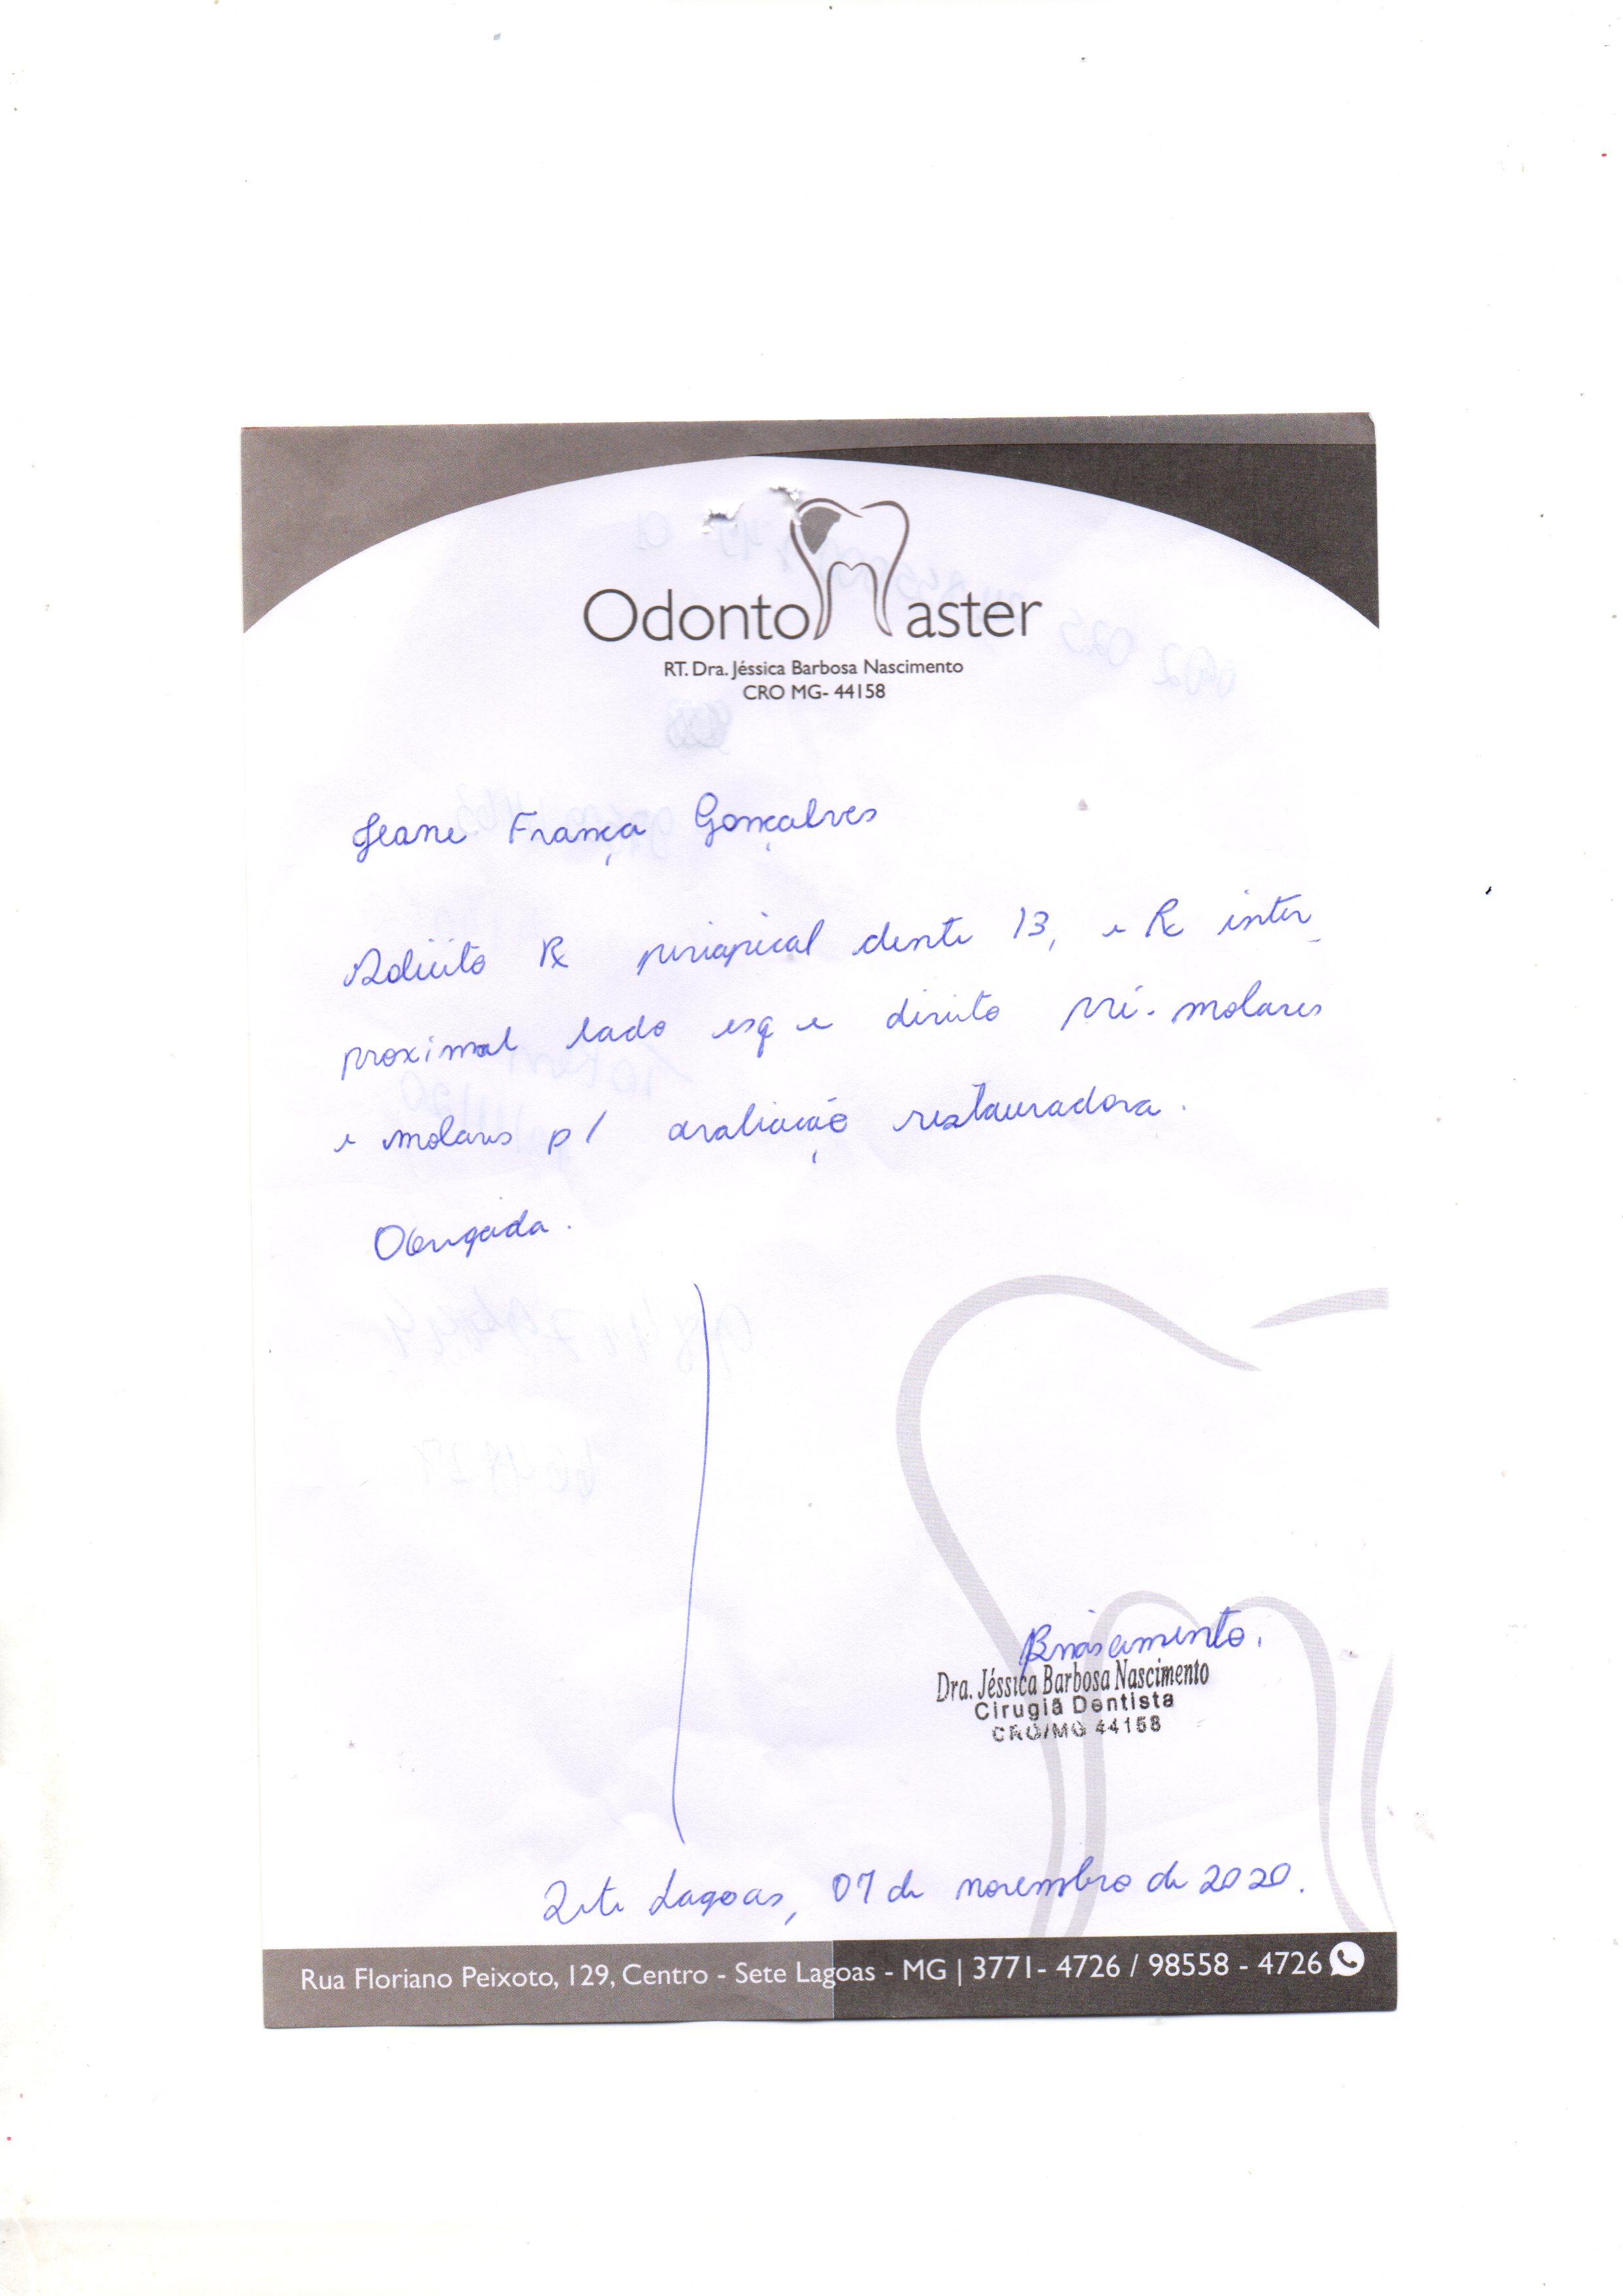 OdontoMaster
RT. Dra. Jéssica Barbosa Nascimento
CRO MG- 44158
Jeane França Gonçalves
Solicito Rx periapical dente 13, e Rx inter_
proximal lado esq e direito pré-molares
e molares p/ avaliação restauradora.
Obrigada.
BNascimento.
Dra. Jéssica Barbosa Nascimento
Cirugiã Dentista
CRO/MG 44158
Sete Lagoas, 07 de novembro de 2020.
Rua Floriano Peixoto, 129, Centro - Sete Lagoas - MG | 3771- 4726 / 98558 - 4726